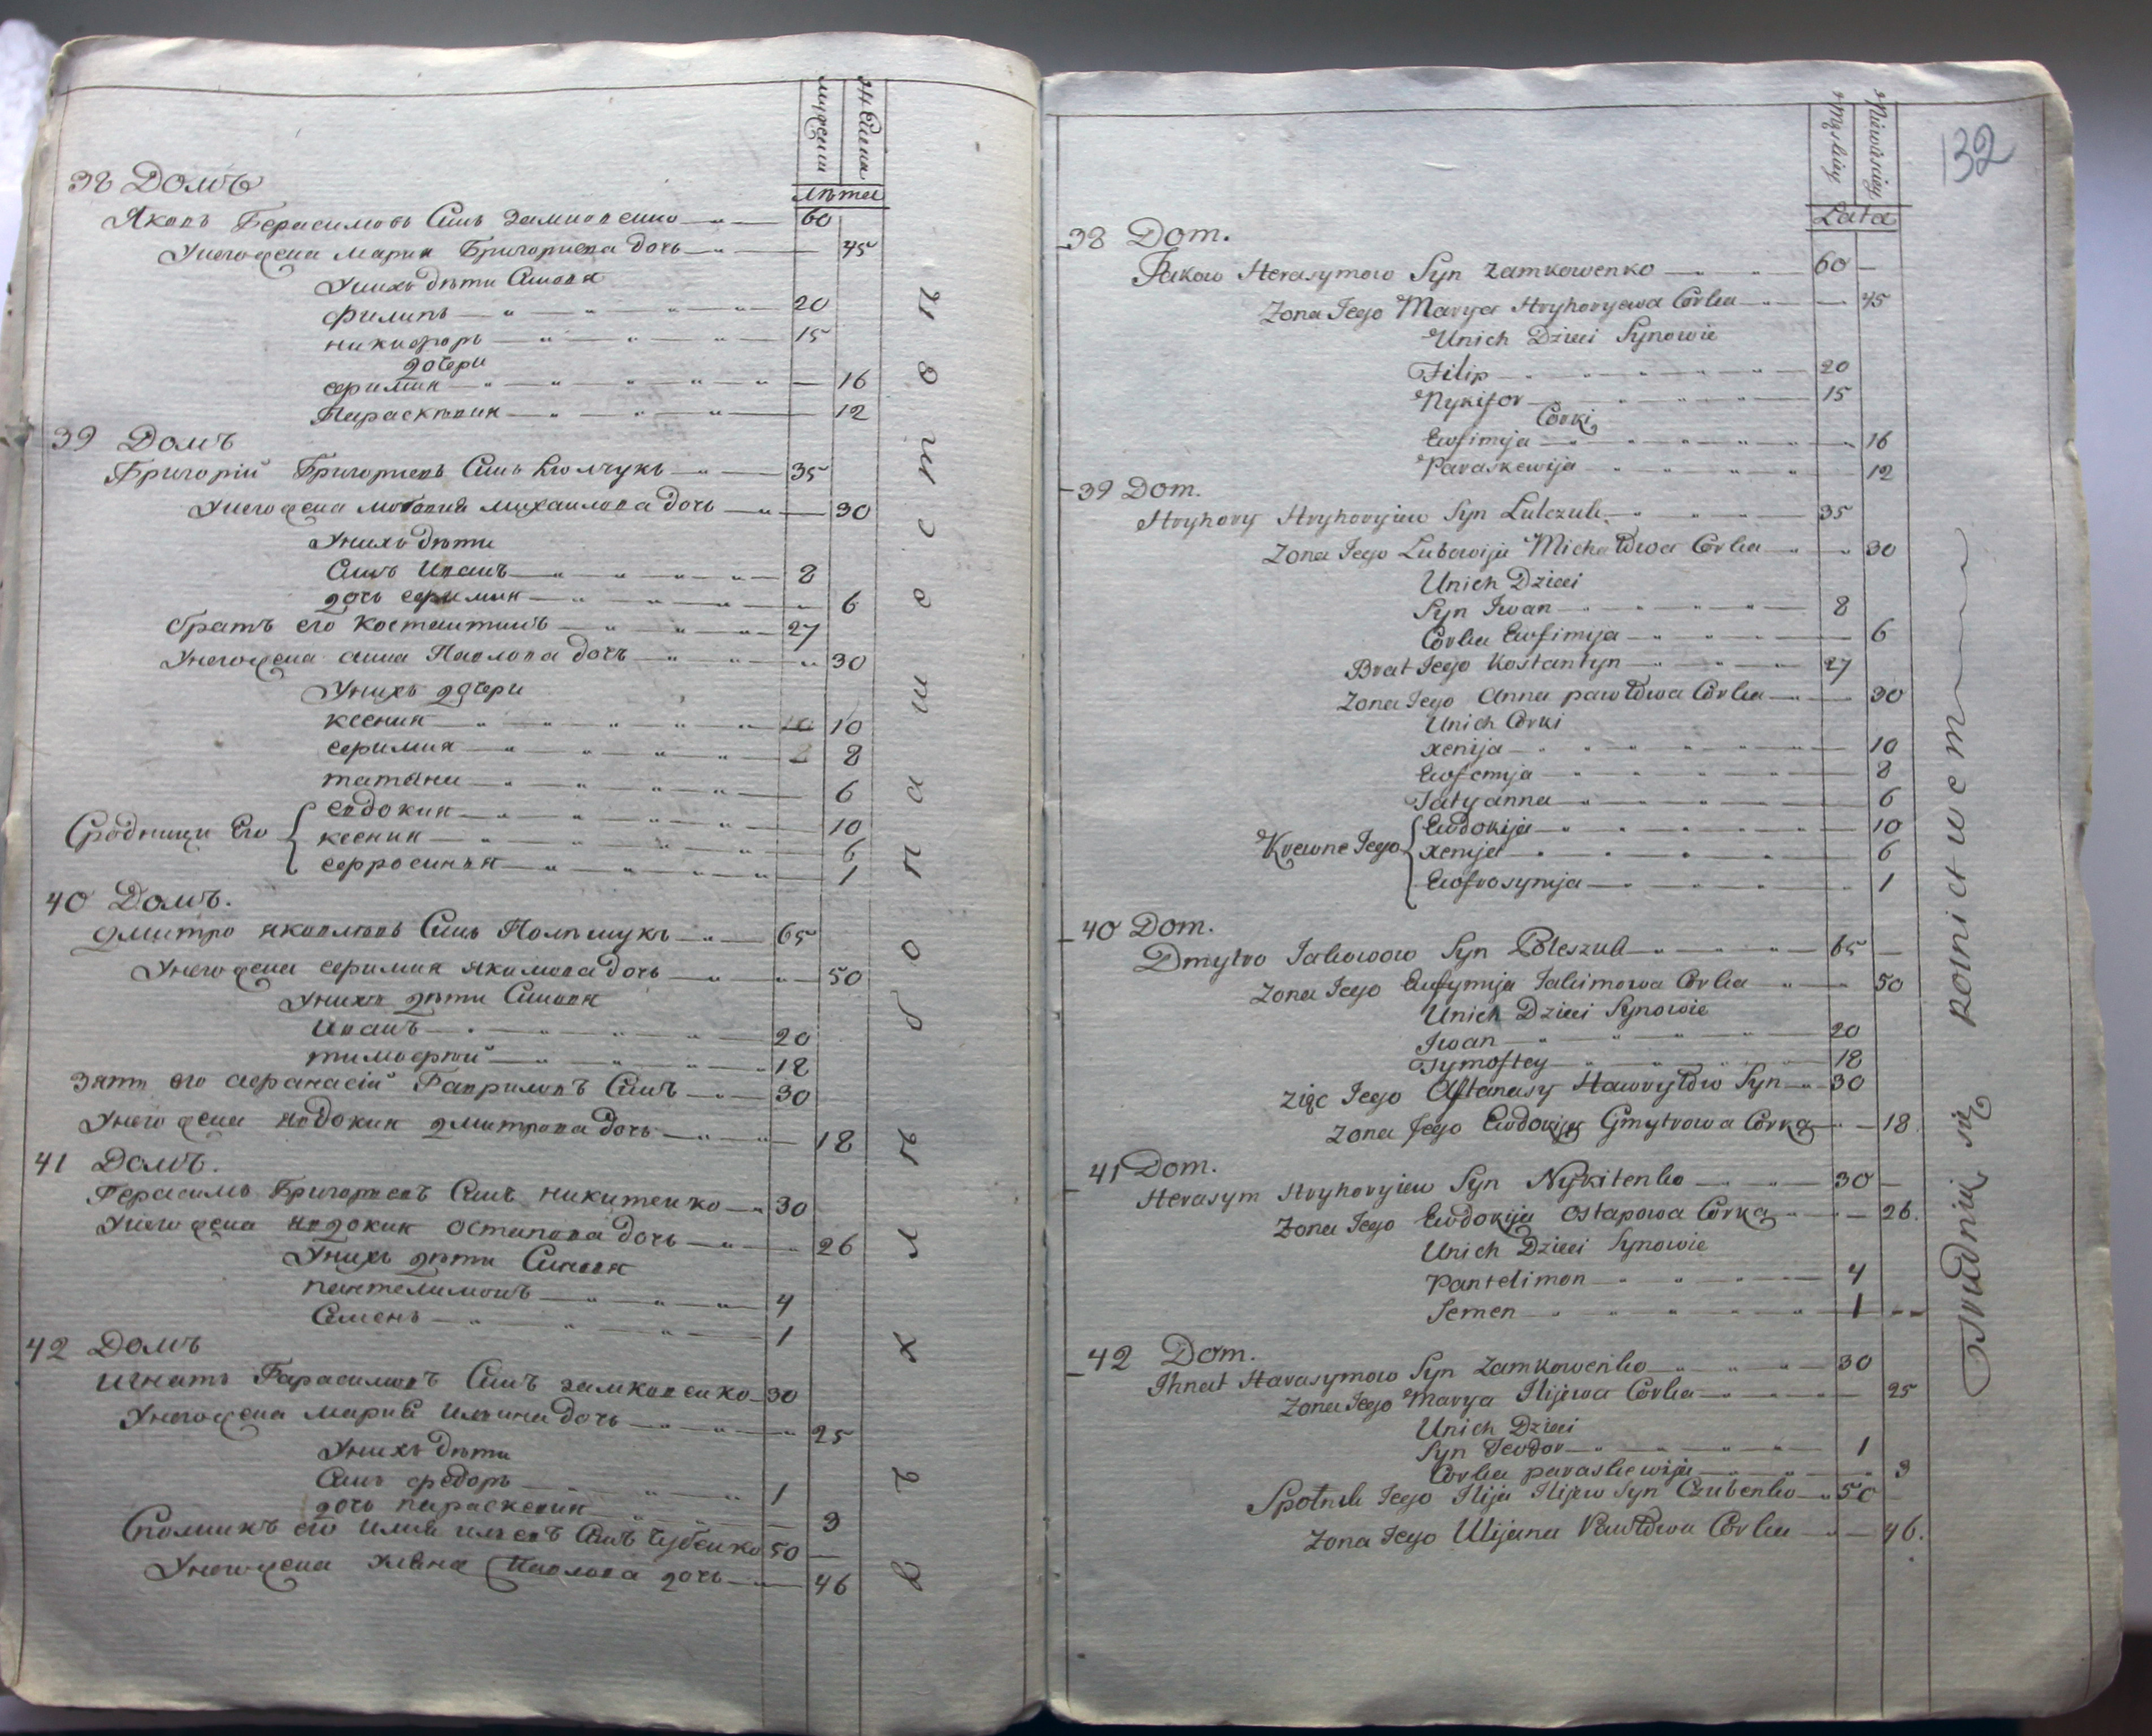 мужеска
женска
лѣта
38 Домъ
Яковъ Герасимовъ Сынъ Замковенко 60
У него жена Мария Григориева дочь 45
У нихъ дѣти Сыновя
Филипъ 20
Никифоръ 15
дочери
Ефимия 16
Параскѣвия 12
39 Домъ
Григорій Григориевъ Сынъ Люлчукъ 35
У него жена Михаилова дочь 30
У нихъ дѣти
Сынъ Иванъ 8
дочь Ефимия 6
братъ его Костантинъ 27
У него жена Анна Павлова дочь 30
У нихъ дочери
Ксения 10 10
Ефимия 8 8
Татяна 6
Сродници Его
Евдокия 10
Ксения 6
Ефросиния 1
40 Домъ.
Дмитро Яковлевъ Сынъ Полѣшукъ 65
У него жена Ефимия Якимова дочь 50
У нихъ дѣти Сыновя
Иванъ 20
Тимофтей 18
Зять его Афанасій Гавриловъ Сынъ 30
У него жена Явдокия Дмитрова дочь 18
41 Домъ.
Герасимъ Григориевъ Сынъ Никитенко 30
У него жена Явдокия Остапова дочь 26
У нихъ дѣти Сыновя
Пантелимонъ 4
Семенъ 1
42 Домъ
Игнатъ Гарасимовъ Сынъ Замковенко 30
У него жена Мария Илина дочь 25
У нихъ дѣти
Сынъ Федоръ 1
дочь Параскевия 3
Сполникъ его Илия Илиевъ Сынъ Чубенко 50
У него жена Павлова дочь 46
хлѣбопашеством
132
Męskiey
Niewiesciey
Lata
38 Dom.
Jakow Herasymow Syn Zamkowenko 60
Zona Jego Marya Hryhoryewa Corka 45
Unich Dzieci Synowie
Filip 20
Nykifor 15
Corki
Ewfimija 16
Paraskewija 12
39 Dom.
Hryhory Hryhoryiew Syn Lulczuk 35
Zona Jego Lubowija Michałowa Corka 30
Unich Dzieci
Syn Iwan 8
Corka Ewfimija 6
Brat Jego Kostantyn 27
Zona Jego Anna pawłowa Corka 30
Unich Corki
Xenija 10
Ewfemija 8
Tatyanna 6
Krewne Jego
Ewdokija 10
Xenija 6
Ewfrosynija 1
40 Dom.
Dmytro Jakowow Syn Poleszuk 65
Zona Jego Eufymija Jakimowa Corka 50
Unich Dzieci Synowie
Iwan 20
Tymoftey 18
Zięc Jego Aftanasy Hawryłow Syn 30
Zona Jego Ewdokija Gmytrowa Corka 18.
41 Dom.
Herasym Hryhoryiew Syn Nykitenko 30
Zona Jego Ewdokija Ostapowa Corka 26.
Unich Dzieci Synowie
Pantelimon 4
Semen 1
42 Dom.
Ihnat Harasymow Syn Zamkowenko 30
Zona Jego Marya Ilijewa Corka 25
Unich Dzieci
Syn Teodor 1
Corka paraskewija 3
Spolnik Jego Ilija Ilijew Syn Czubenko 50
Zona Jego Ulijana Pawłowa Corka 46.
Trudnią się Rolnictwem